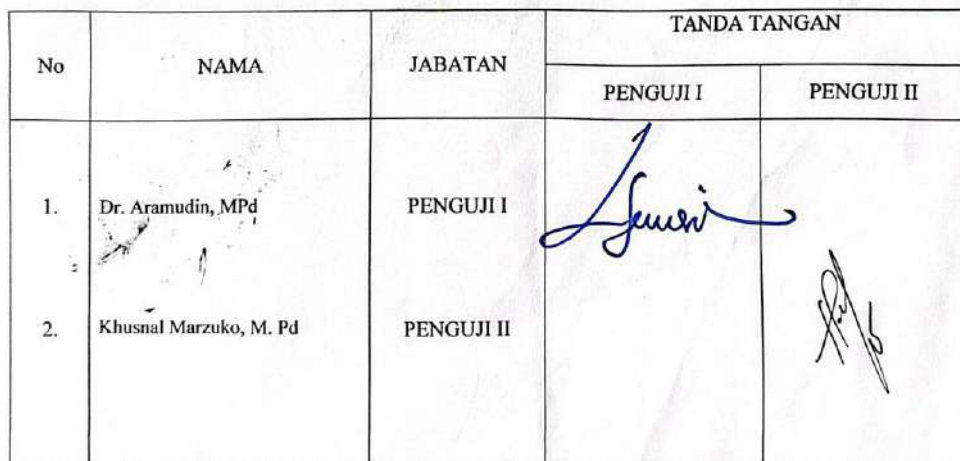 TANDA TANGAN
No NAMA JABATAN
PENGUJI I PENGUJI II
1. Dr. Aramudin, MPd PENGUJI I
2. Khusnal Marzuko, M. Pd PENGUJI II